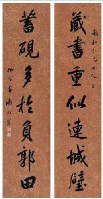 藏書重似連城璧
蓄硯多於負郭田